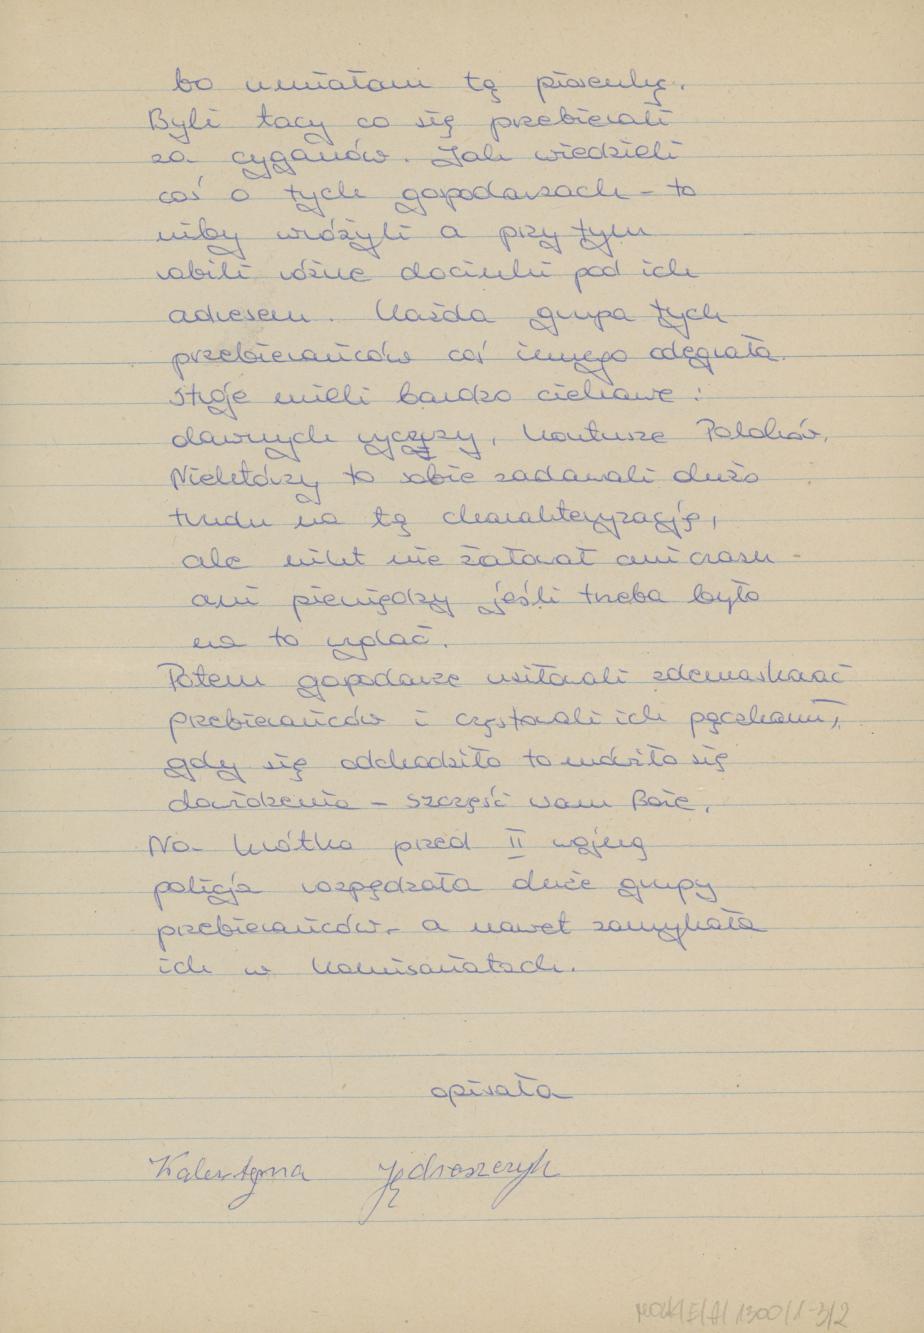 bo umiałam tą piosenkę.
Byli tacy co się przebierali
za cyganów. Jak wiedzieli
coś o tych gopodarzach - to
niby wróżyli a przy tym
robili różne docinki pod ich
adresem. Każda grupa tych
przebierańców coś innego odegrała.
Stroje mieli bardzo ciekawe :
dawnych rycerzy, kontusze Polaków.
Niektórzy to sobie zadawali dużo
trudu na tą charakteryzację,
ale nikt nie żałował ani czasu -
ani pieniędzy jeśli trzeba było
na to wydać.
Potem gopodarze usiłowali zdemaskować
przebierańców i częstowali ich pączkami,
gdy się odchodziło to mówiło się
dowidzenia - szczęść wam Boże.
Na- krótko przed II wojną
policja rozpędzała duże grupy
przebierańców - a nawet zamykała
ich w komisariatach.
opisała
Jędraszczyk
1300/1-3/2